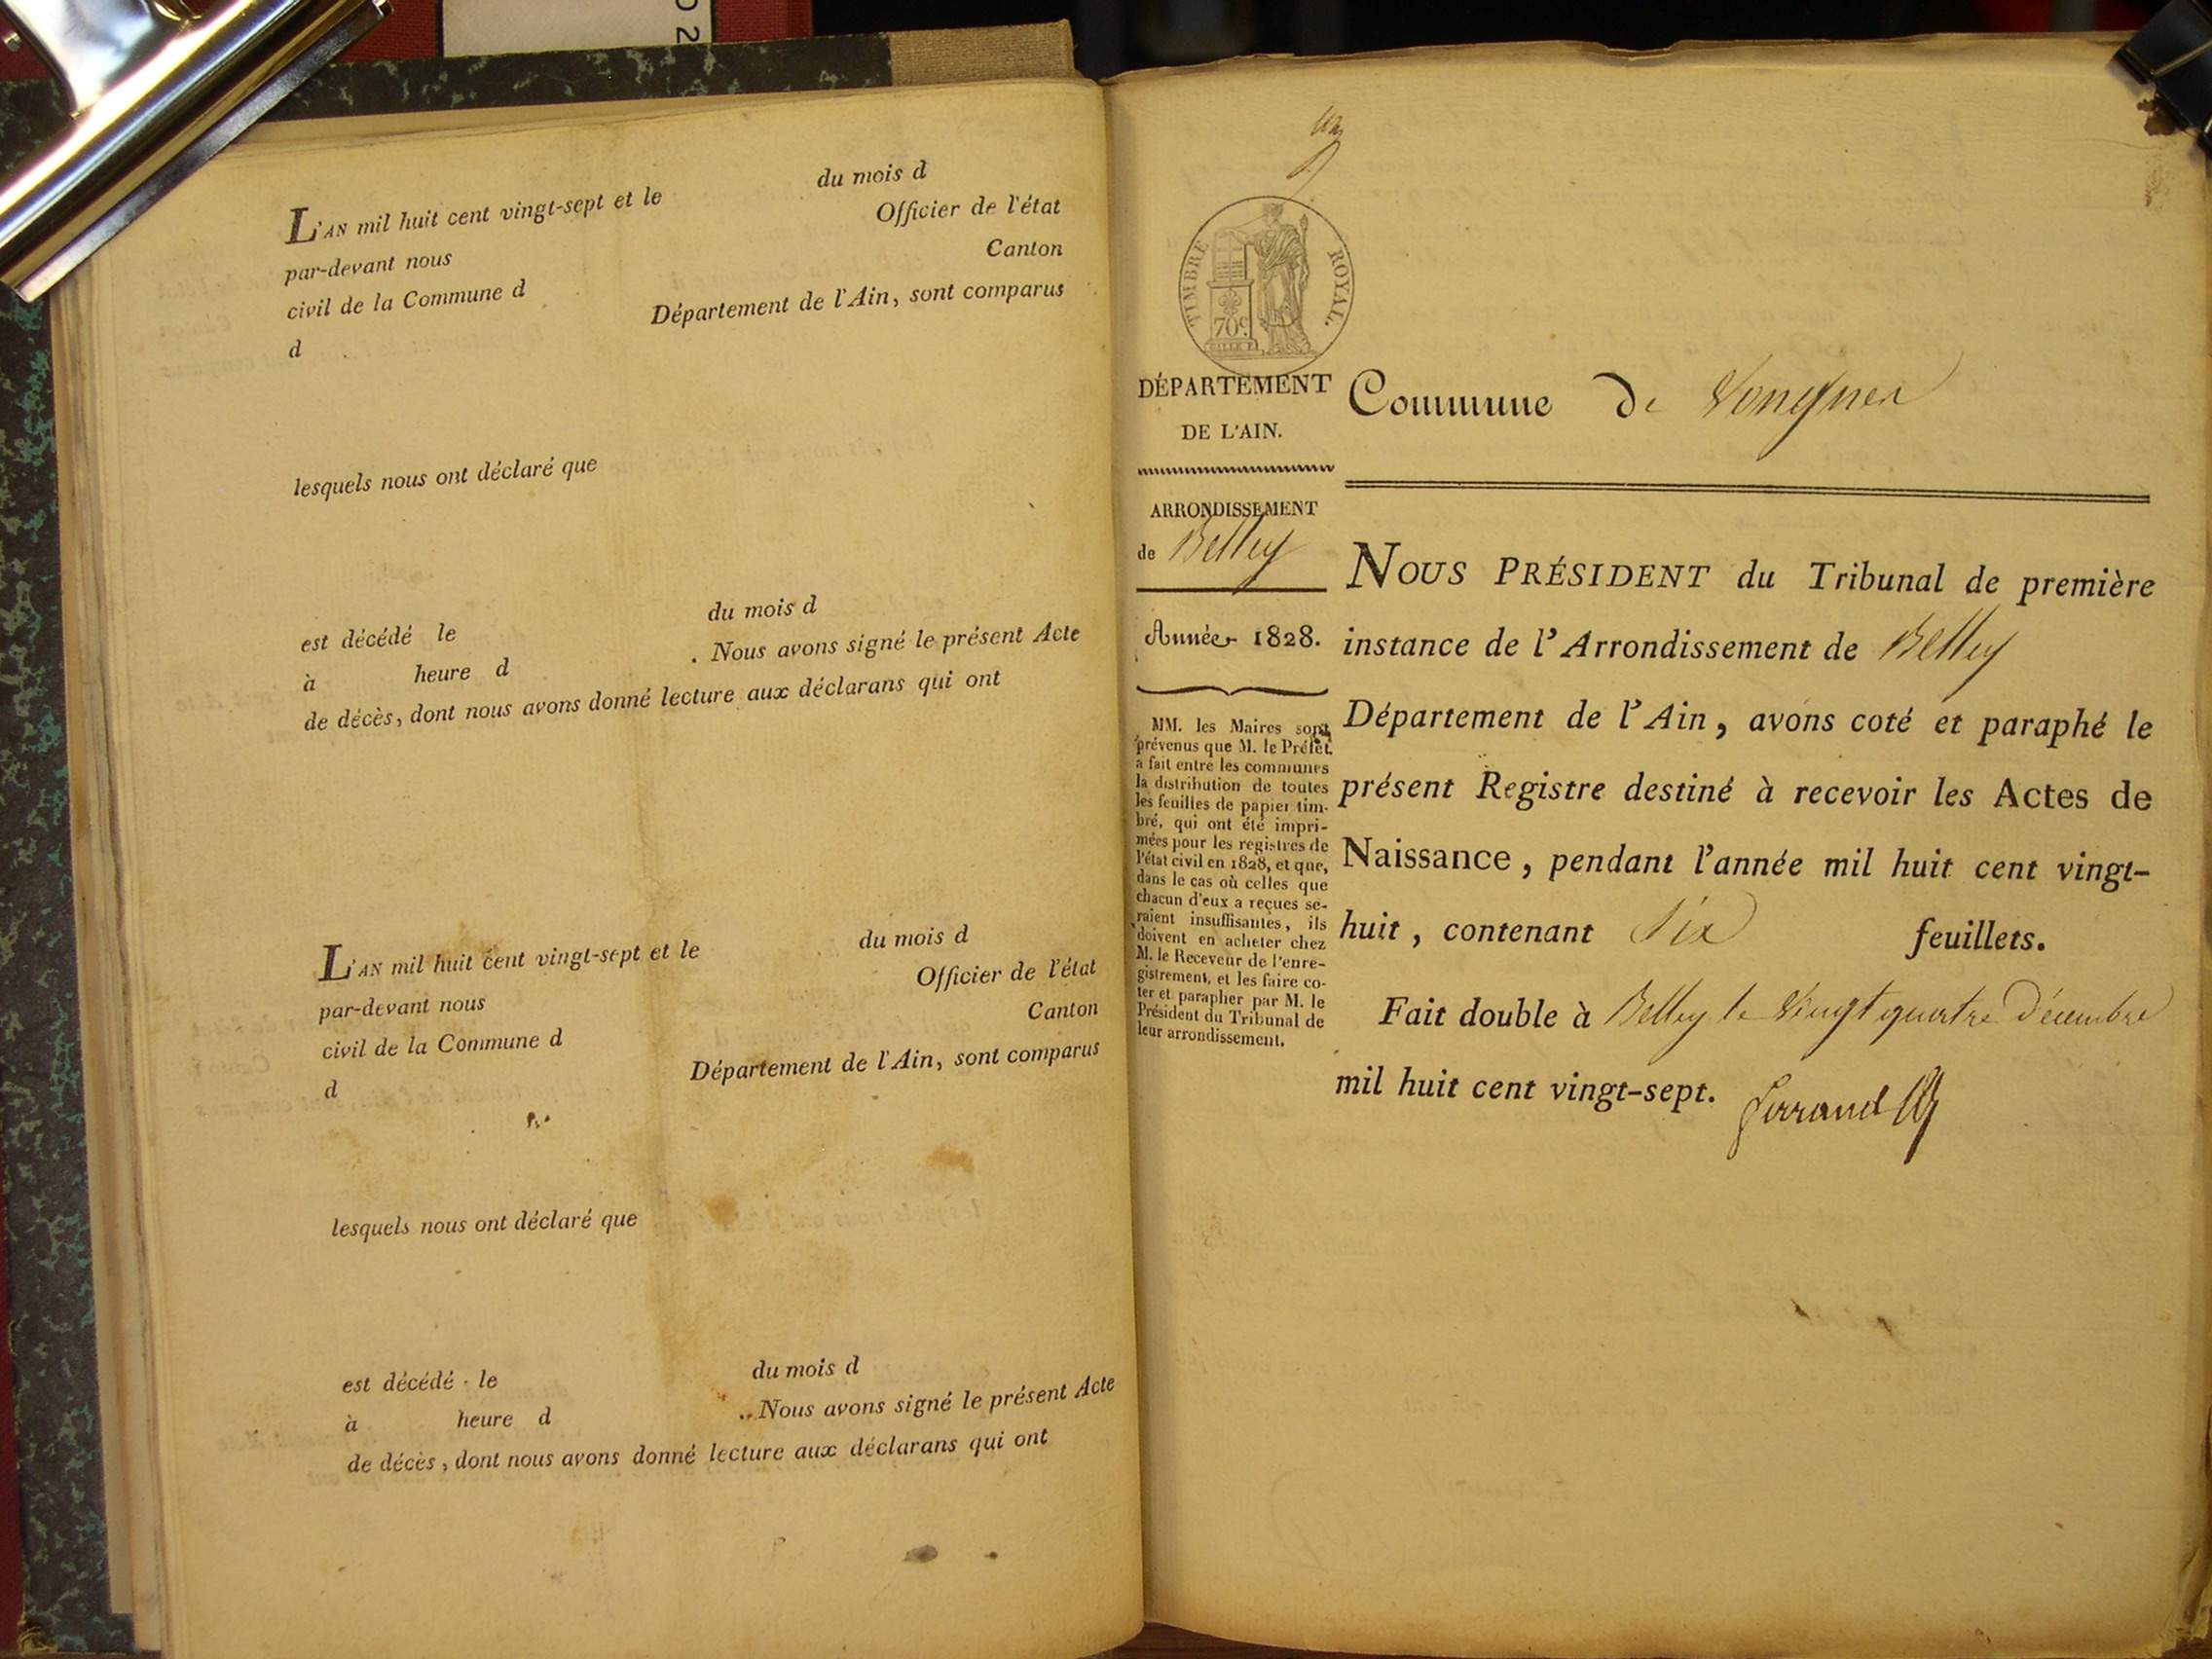 02
L'AN mil huit cent vingt-sept et le du mois d
par-devant nous Officier de l'état
civil de la Commune d Canton
d Département de l'Ain, sont comparus
lesquels nous ont déclaré que
est décédé le du mois d
à heure d . Nous avons signé le présent Acte
de décès, dont nous avons donné lecture aux déclarans qui ont
L'AN mil huit cent vingt-sept et le du mois d
par-devant nous Officier de l'état
civil de la Commune d Canton
d Département de l'Ain, sont comparus
lesquels nous ont déclaré que
est décédé le du mois d
à heure d . Nous avons signé le présent Acte
de décès, dont nous avons donné lecture aux déclarans qui ont
TIMBRE ROYAL.
70c
DÉPARTEMENT
DE L'AIN.
ARRONDISSEMENT
de Belley
Année 1828.
MM. les Maires sont
prévenus que M. le Préfet
a fait entre les communes
la distribution de toutes
les feuilles de papier tim-
bré, qui ont été impri-
mées pour les registres de
l'état civil en 1828, et que,
dans le cas où celles que
chacun d'eux a reçues se-
raient insuffisantes, ils
doivent en acheter chez
M. le Receveur de l'enre-
gistrement, et les faire co-
ter et parapher par M. le
Président du Tribunal de
leur arrondissement.
Commune de Vongnes
NOUS PRÉSIDENT du Tribunal de première
instance de l'Arrondissement de Belley
Département de l'Ain, avons coté et paraphé le
présent Registre destiné à recevoir les Actes de
Naissance, pendant l'année mil huit cent vingt-
huit, contenant Six feuillets.
Fait double à Belley le Vingt quatre Décembre
mil huit cent vingt-sept.